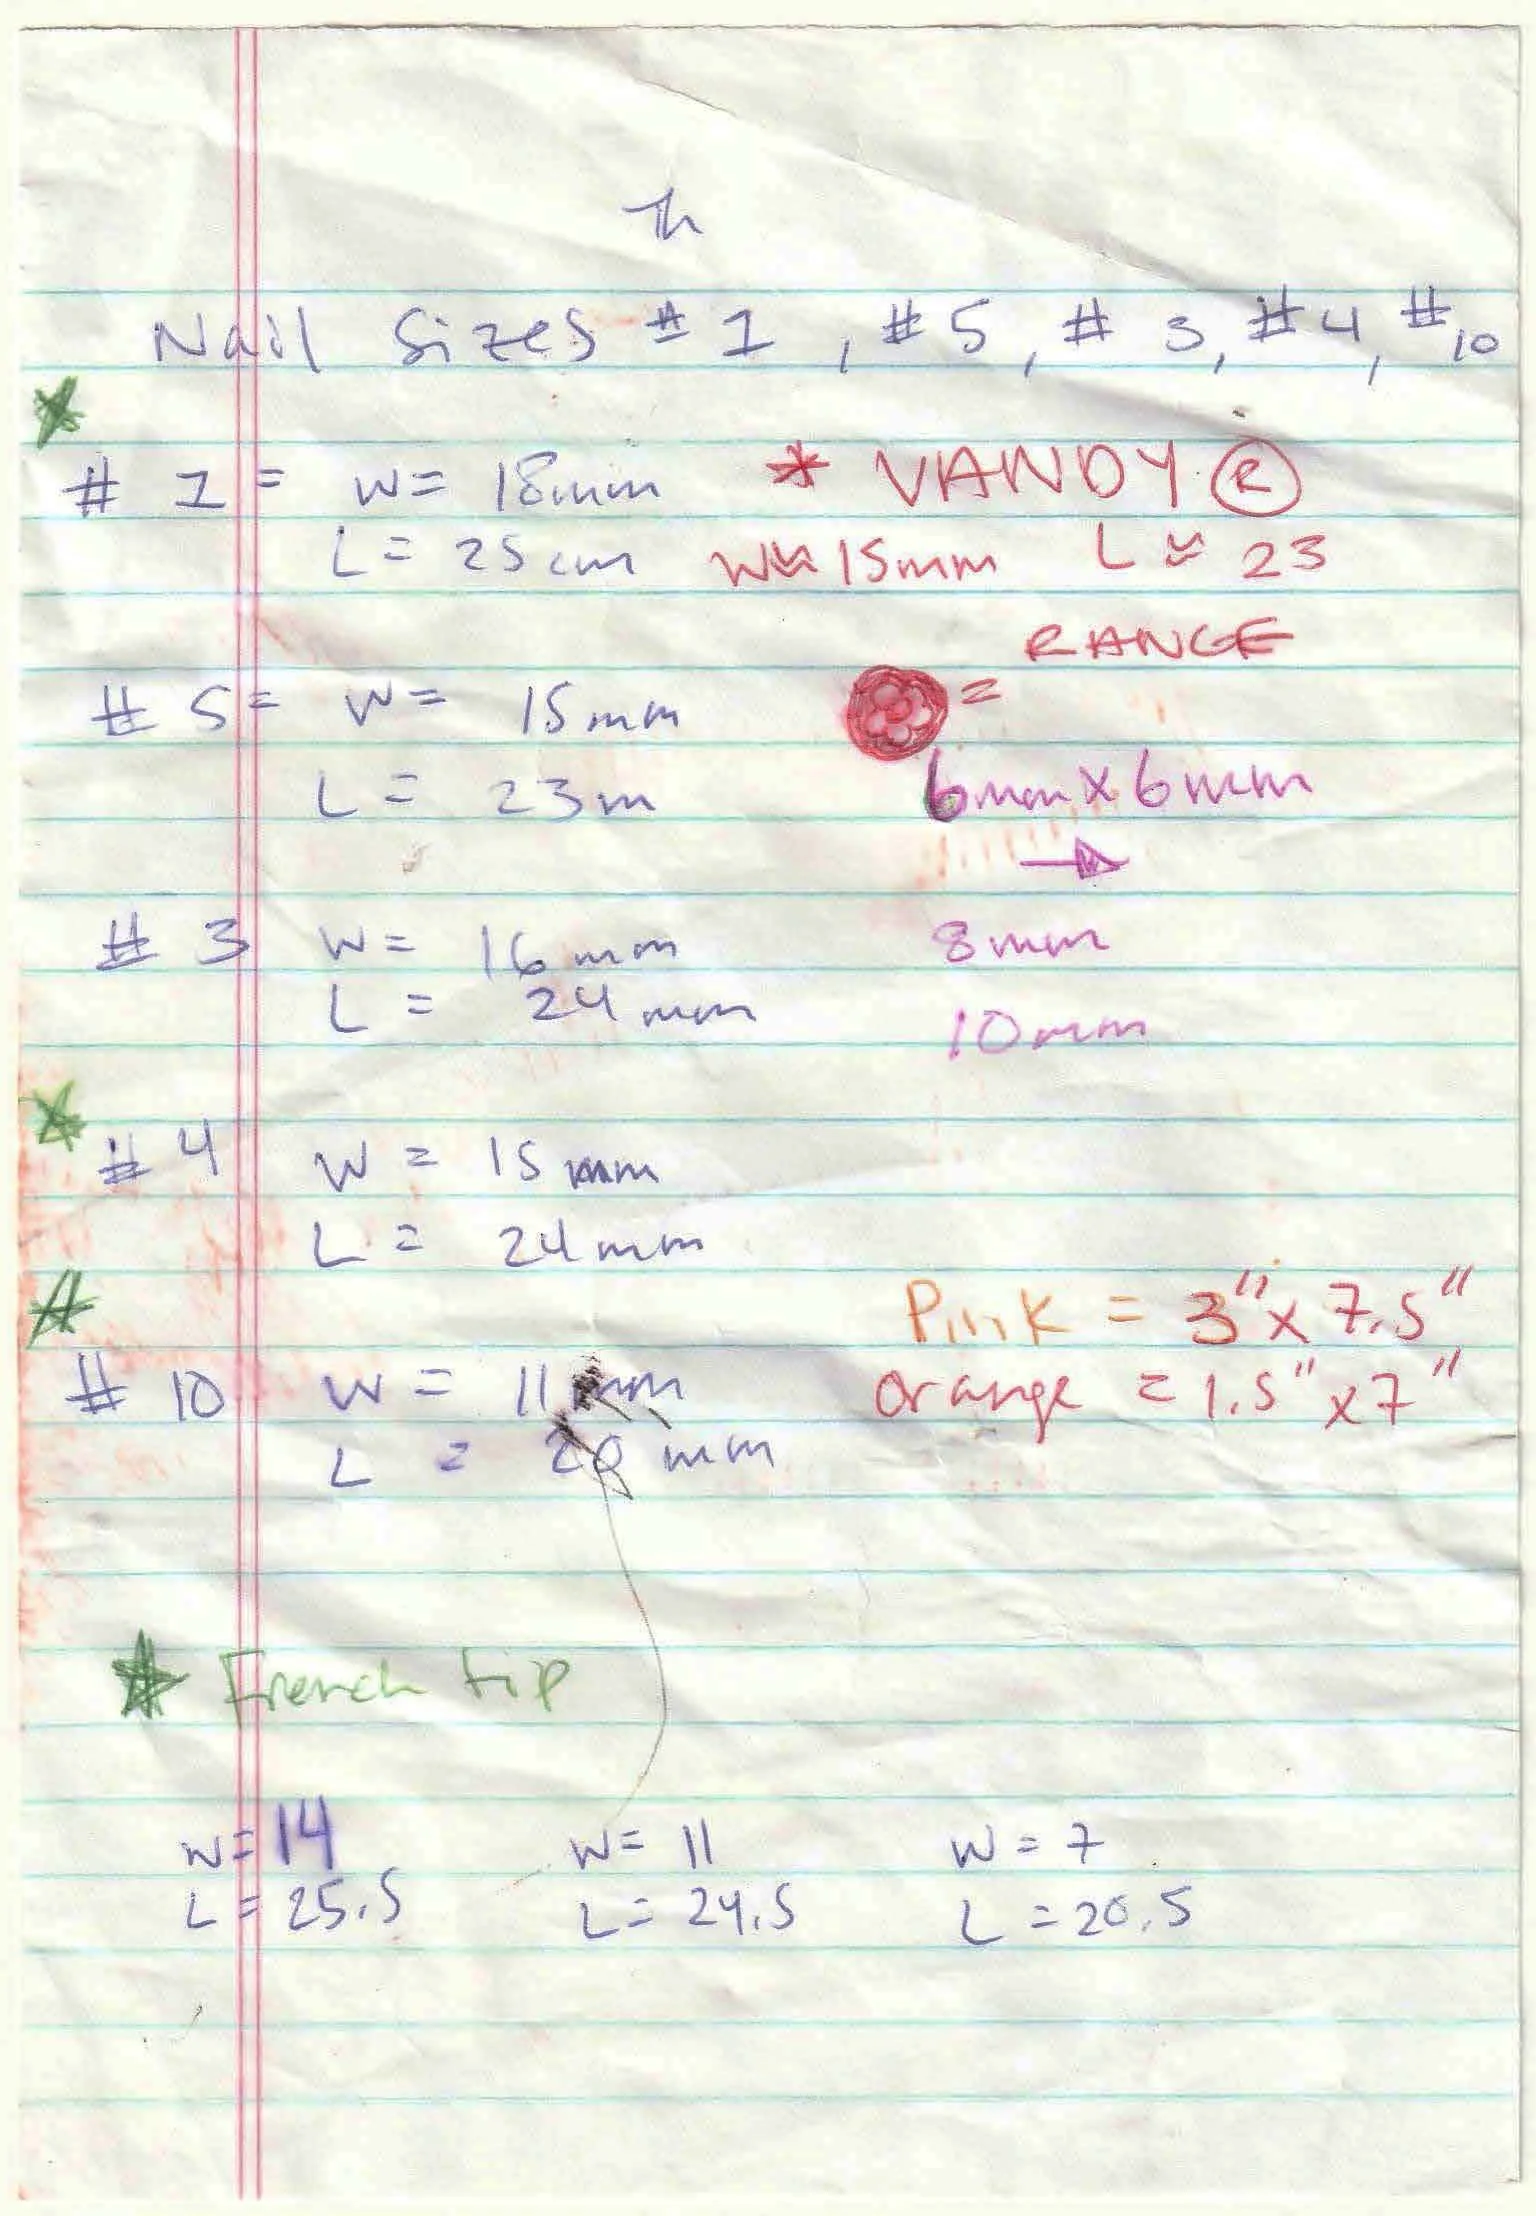 Th
Nail sizes #1, #5, #3, #4, #10
#1= W= 18mm
L= 25cm
* VANDY ®
W≈15mm L≈23
RANGE
=
6mm x 6mm
→
8mm
10mm
#5= W= 15mm
L= 23m
#3 W= 16mm
L= 24mm
#4 W= 15mm
L= 24mm
Pink = 3" x 7.5"
orange = 1.5" x 7"
#10 W= 11mm
L = mm
French tip
W=14 W= 11 W=7
L=25.5 L=24.5 L=20.5